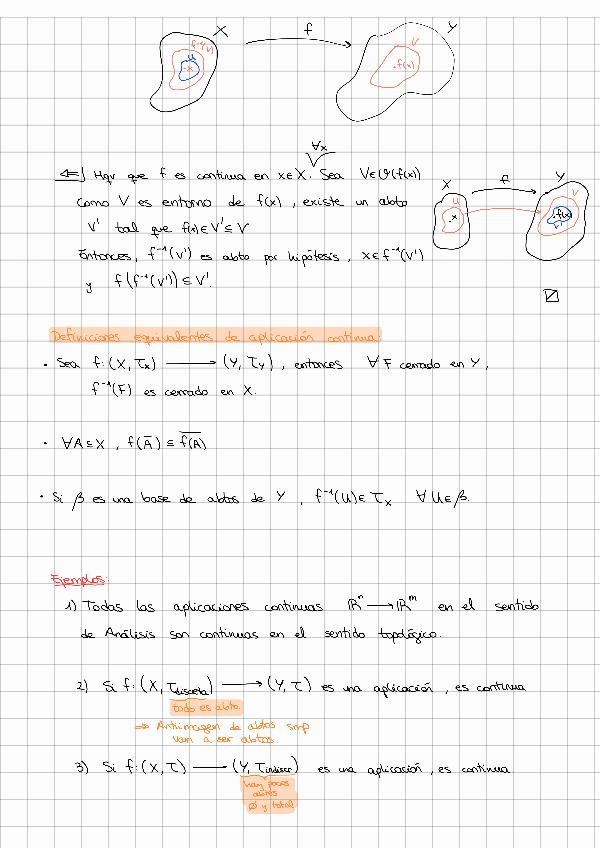 X f Y
f⁻¹(V) V
U
·x ·f(x)
∀x
⇐] Hqv que f es continua en x∈X. Sea V∈ϑ(f(x))
Como V es entorno de f(x), existe un abto
V' tal que f(x)∈V'⊆V
Entonces, f⁻¹(V') es abto por hipótesis, x∈f⁻¹(V')
y f(f⁻¹(V'))⊆V'.
X f Y
U V
·x ·f(x)
V'
Definiciones equivalentes de aplicación continua:
· Sea f:(X,τₓ) ⟶ (Y,τᵧ), entonces ∀F cerrado en Y,
f⁻¹(F) es cerrado en X.
· ∀A⊆X, f(A̅)⊆f(A)̅
· Si β es una base de abtos de Y, f⁻¹(U)∈τₓ ∀U∈β.
Ejemplos:
1) Todas las aplicaciones continuas ℝⁿ⟶ℝᵐ en el sentido
de Análisis son continuas en el sentido topológico.
2) Si f:(X,τdiscreta) ⟶ (Y,τ) es una aplicación, es continua
todo es abto.
⇒ Antiimagen de abtos smp
van a ser abtos.
3) Si f:(X,τ) ⟶ (Y,τindiscr) es una aplicación, es continua
hay pocos
abtos
∅ y total